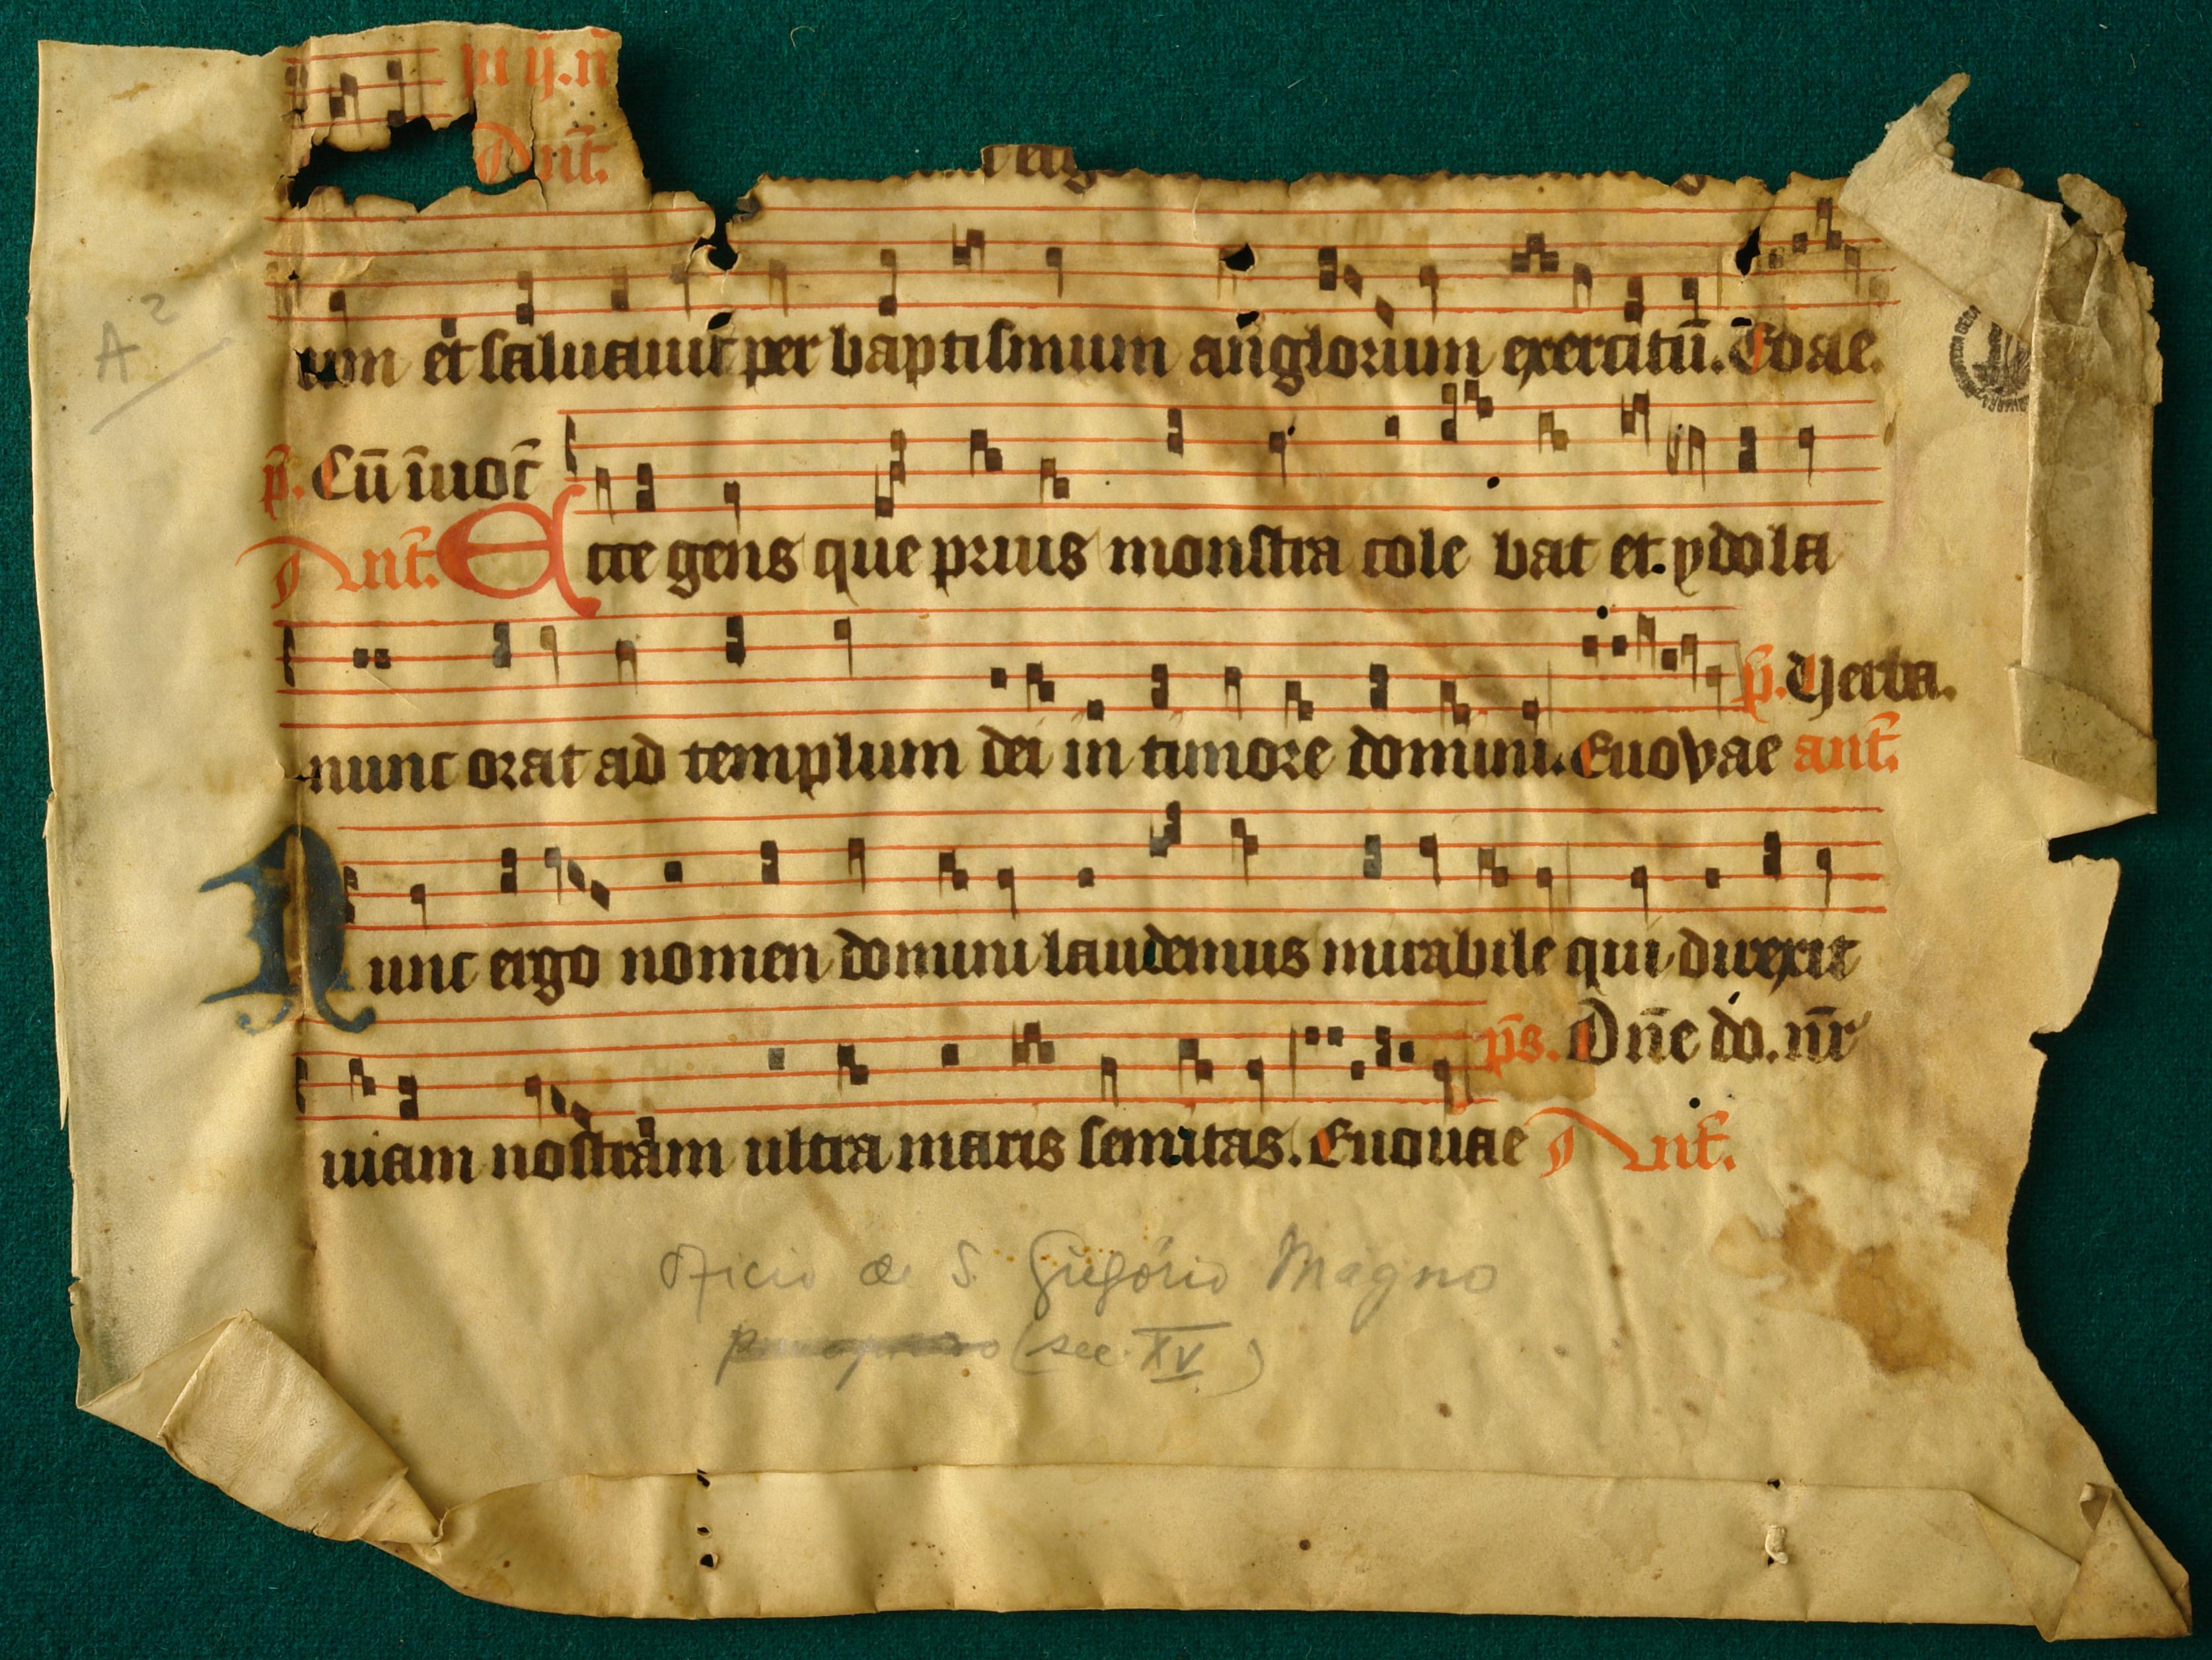 iu ij. n̄
Ant̄.
uon et saluauit per baptismum anglorum exercitū. Eoae.
A 2
p̄. Cū īuoc̄
Ant̄. Ecce gens que prius monstra cole bat et. ydola
p̄. Verba.
nunc orat ad templum dei in timore domini. Euovae ant̄.
Nunc ergo nomen domini laudemus mirabile qui direxit
p̄s. Dn̄e do. nr̄
uiam nostram ultra maris semitas. Euouae Ant̄.
Oficio de S. Gregório Magno
(sec. XV)